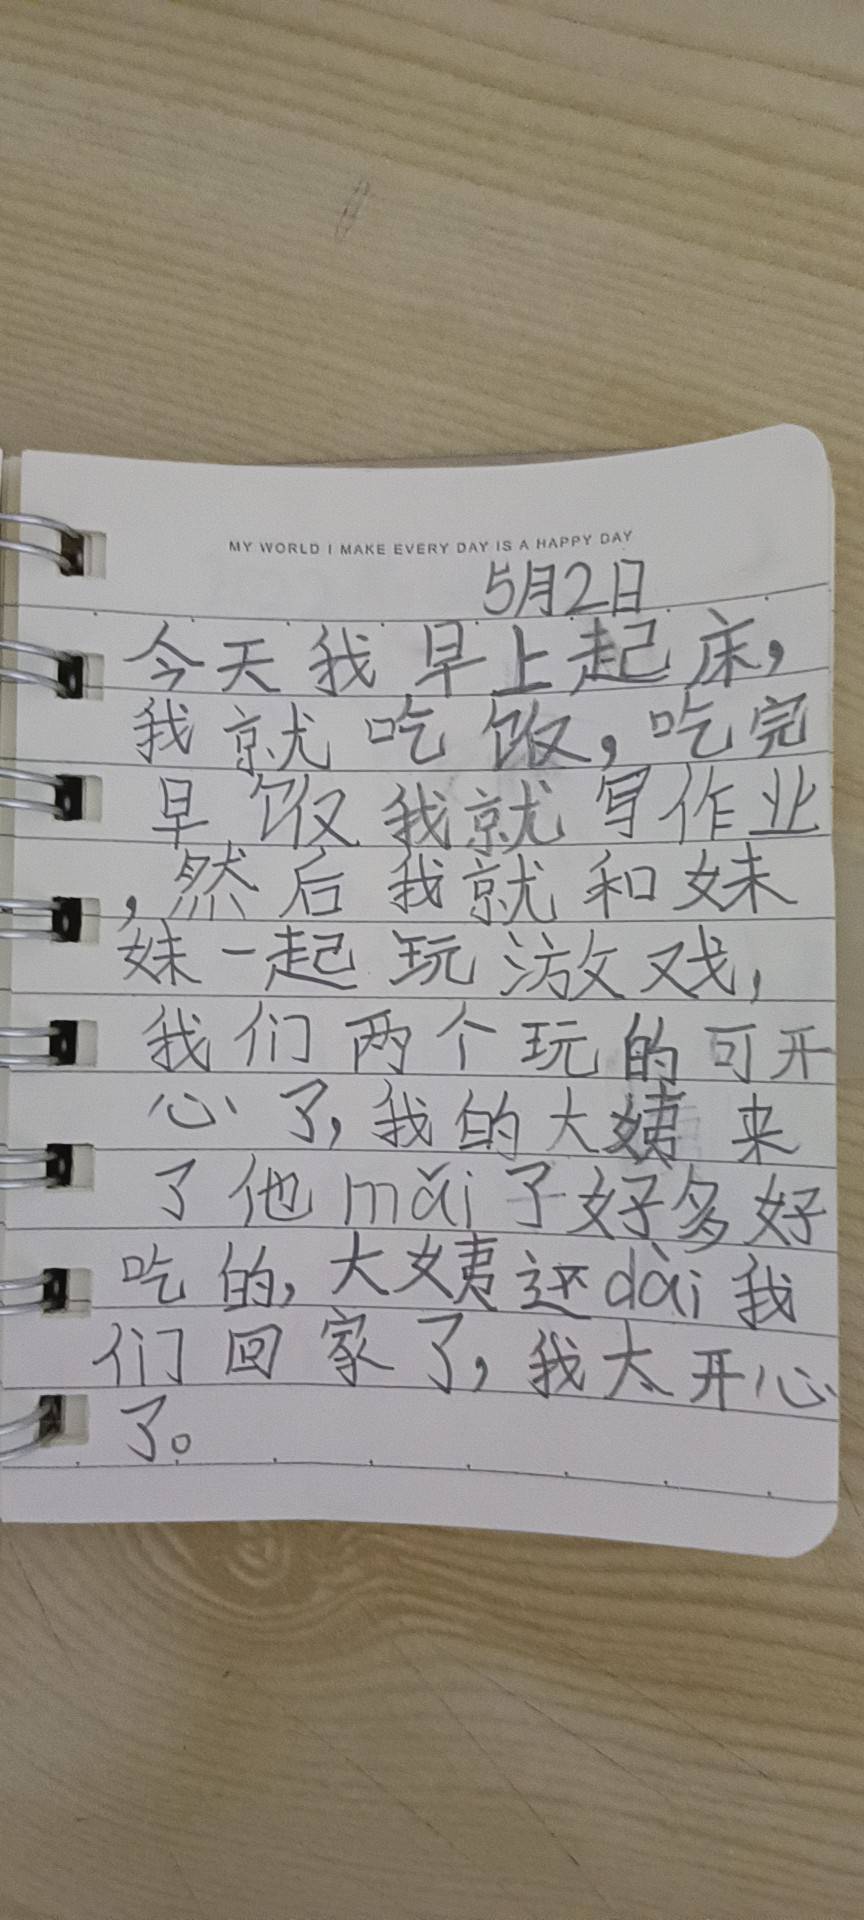 MY WORLD I MAKE EVERY DAY IS A HAPPY DAY
5月2日
今天我早上起床，
我就吃饭，吃完
早饭我就写作业
，然后我就和妹
妹一起玩游戏，
我们两个玩的可开
心了，我的大姨来
了他mǎi了好多好
吃的，大姨还dài我
们回家了，我太开心
了。